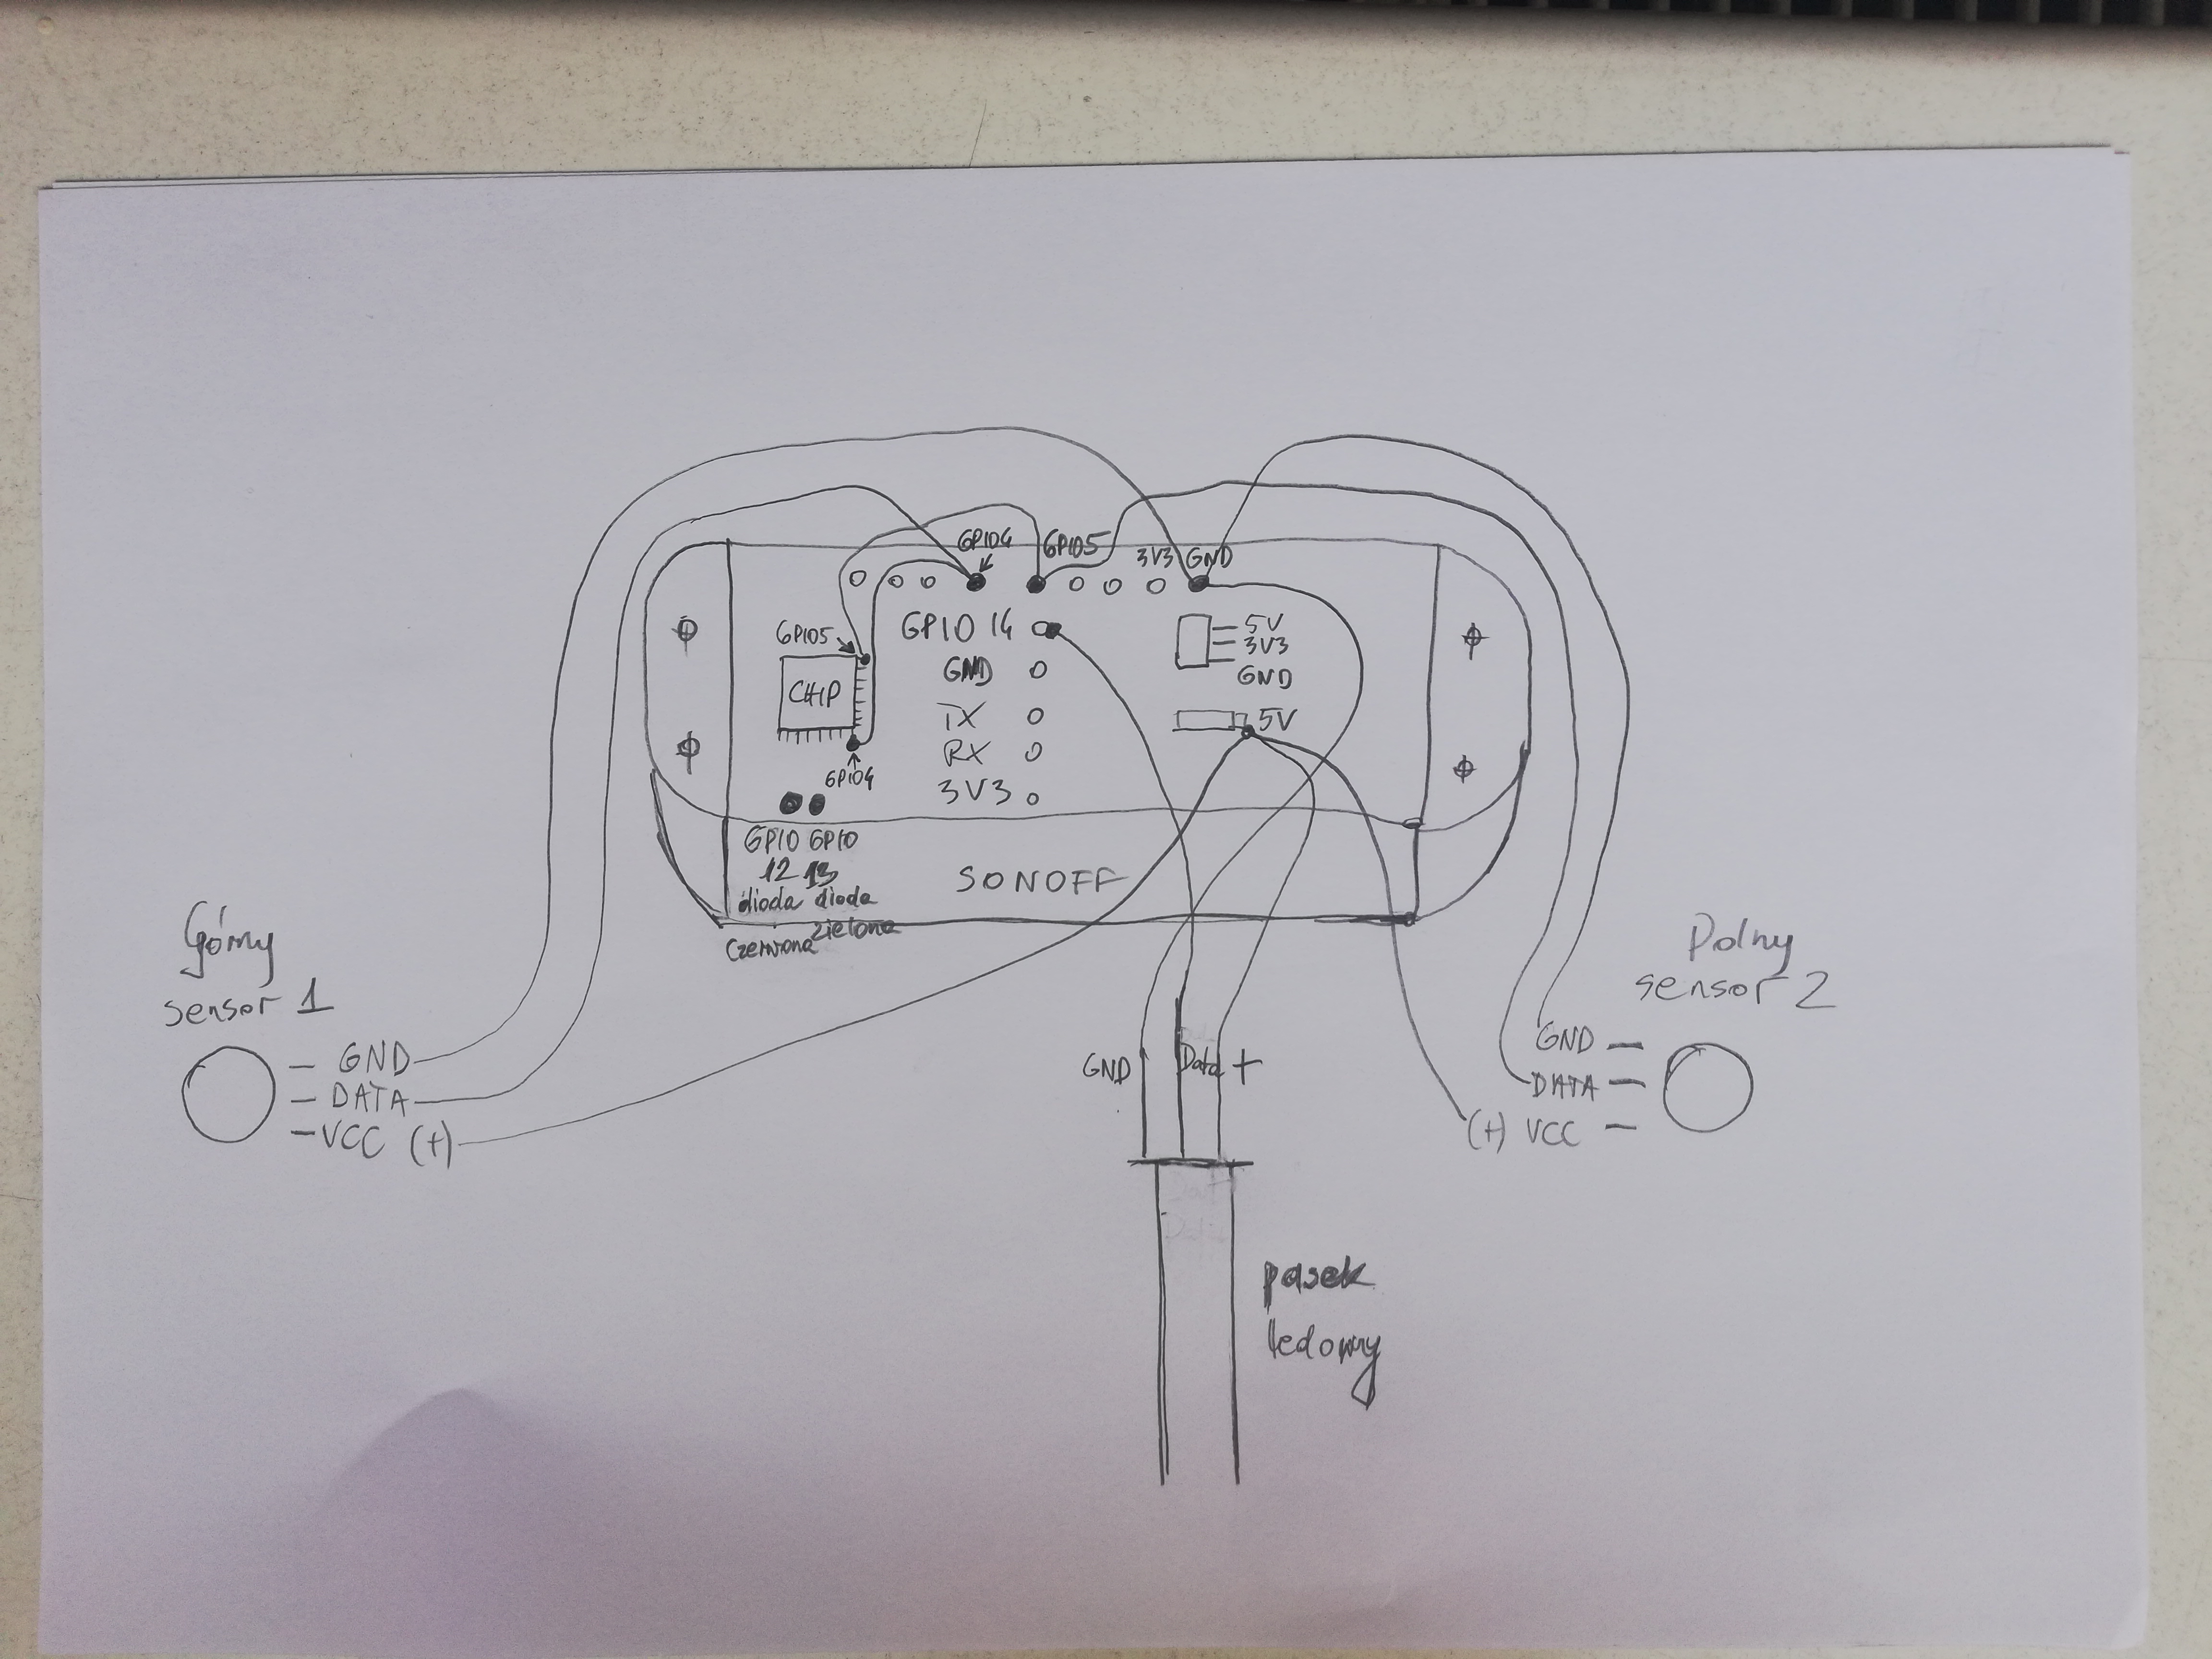 GPIO4
GPIO5
3V3 GND
GPIO5
GPIO 14
5V
3V3
GND
GND
CHIP
TX
5V
RX
GPIO4
3V3
GPIO GPIO
12 13
dioda dioda
czerwona zielona
SONOFF
Górny
sensor 1
GND
DATA
VCC (+)
Dolny
sensor 2
GND
DATA
(+) VCC
GND Data +
pasek
ledowy